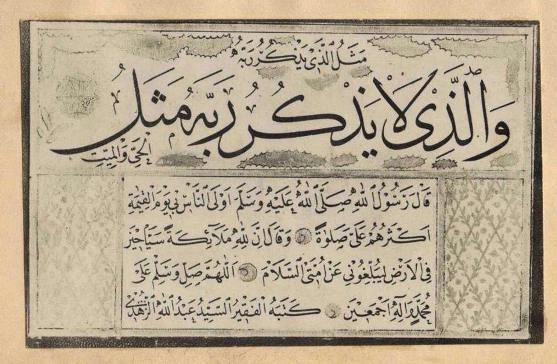 مَثَلُ الَّذِي يَذْكُرُ رَبَّهُ
وَالَّذِي لَا يَذْكُرُ رَبَّهُ مَثَلُ
الْحَيِّ وَالْمَيِّتِ
قَالَ رَسُولُ اللهِ صَلَّى اللهُ عَلَيْهِ وَسَلَّمَ اَوْلَى النَّاسِ بِي يَوْمَ الْقِيٰمَةِ
اَكْثَرُهُمْ عَلَيَّ صَلٰوةً وَقَالَ اِنَّ لِلهِ مَلَآئِكَةً سَيَّاحِيْنَ
فِي الْاَرْضِ يُبَلِّغُونِي عَنْ اُمَّتِيَ السَّلَامَ اَللّٰهُمَّ صَلِّ وَسَلِّمْ عَلَى
مُحَمَّدٍ وَآلِهِ اَجْمَعِيْنَ كَتَبَهُ الْفَقِيرُ السَّيِّدُ عَبْدُ اللهِ الزُّهْدِي